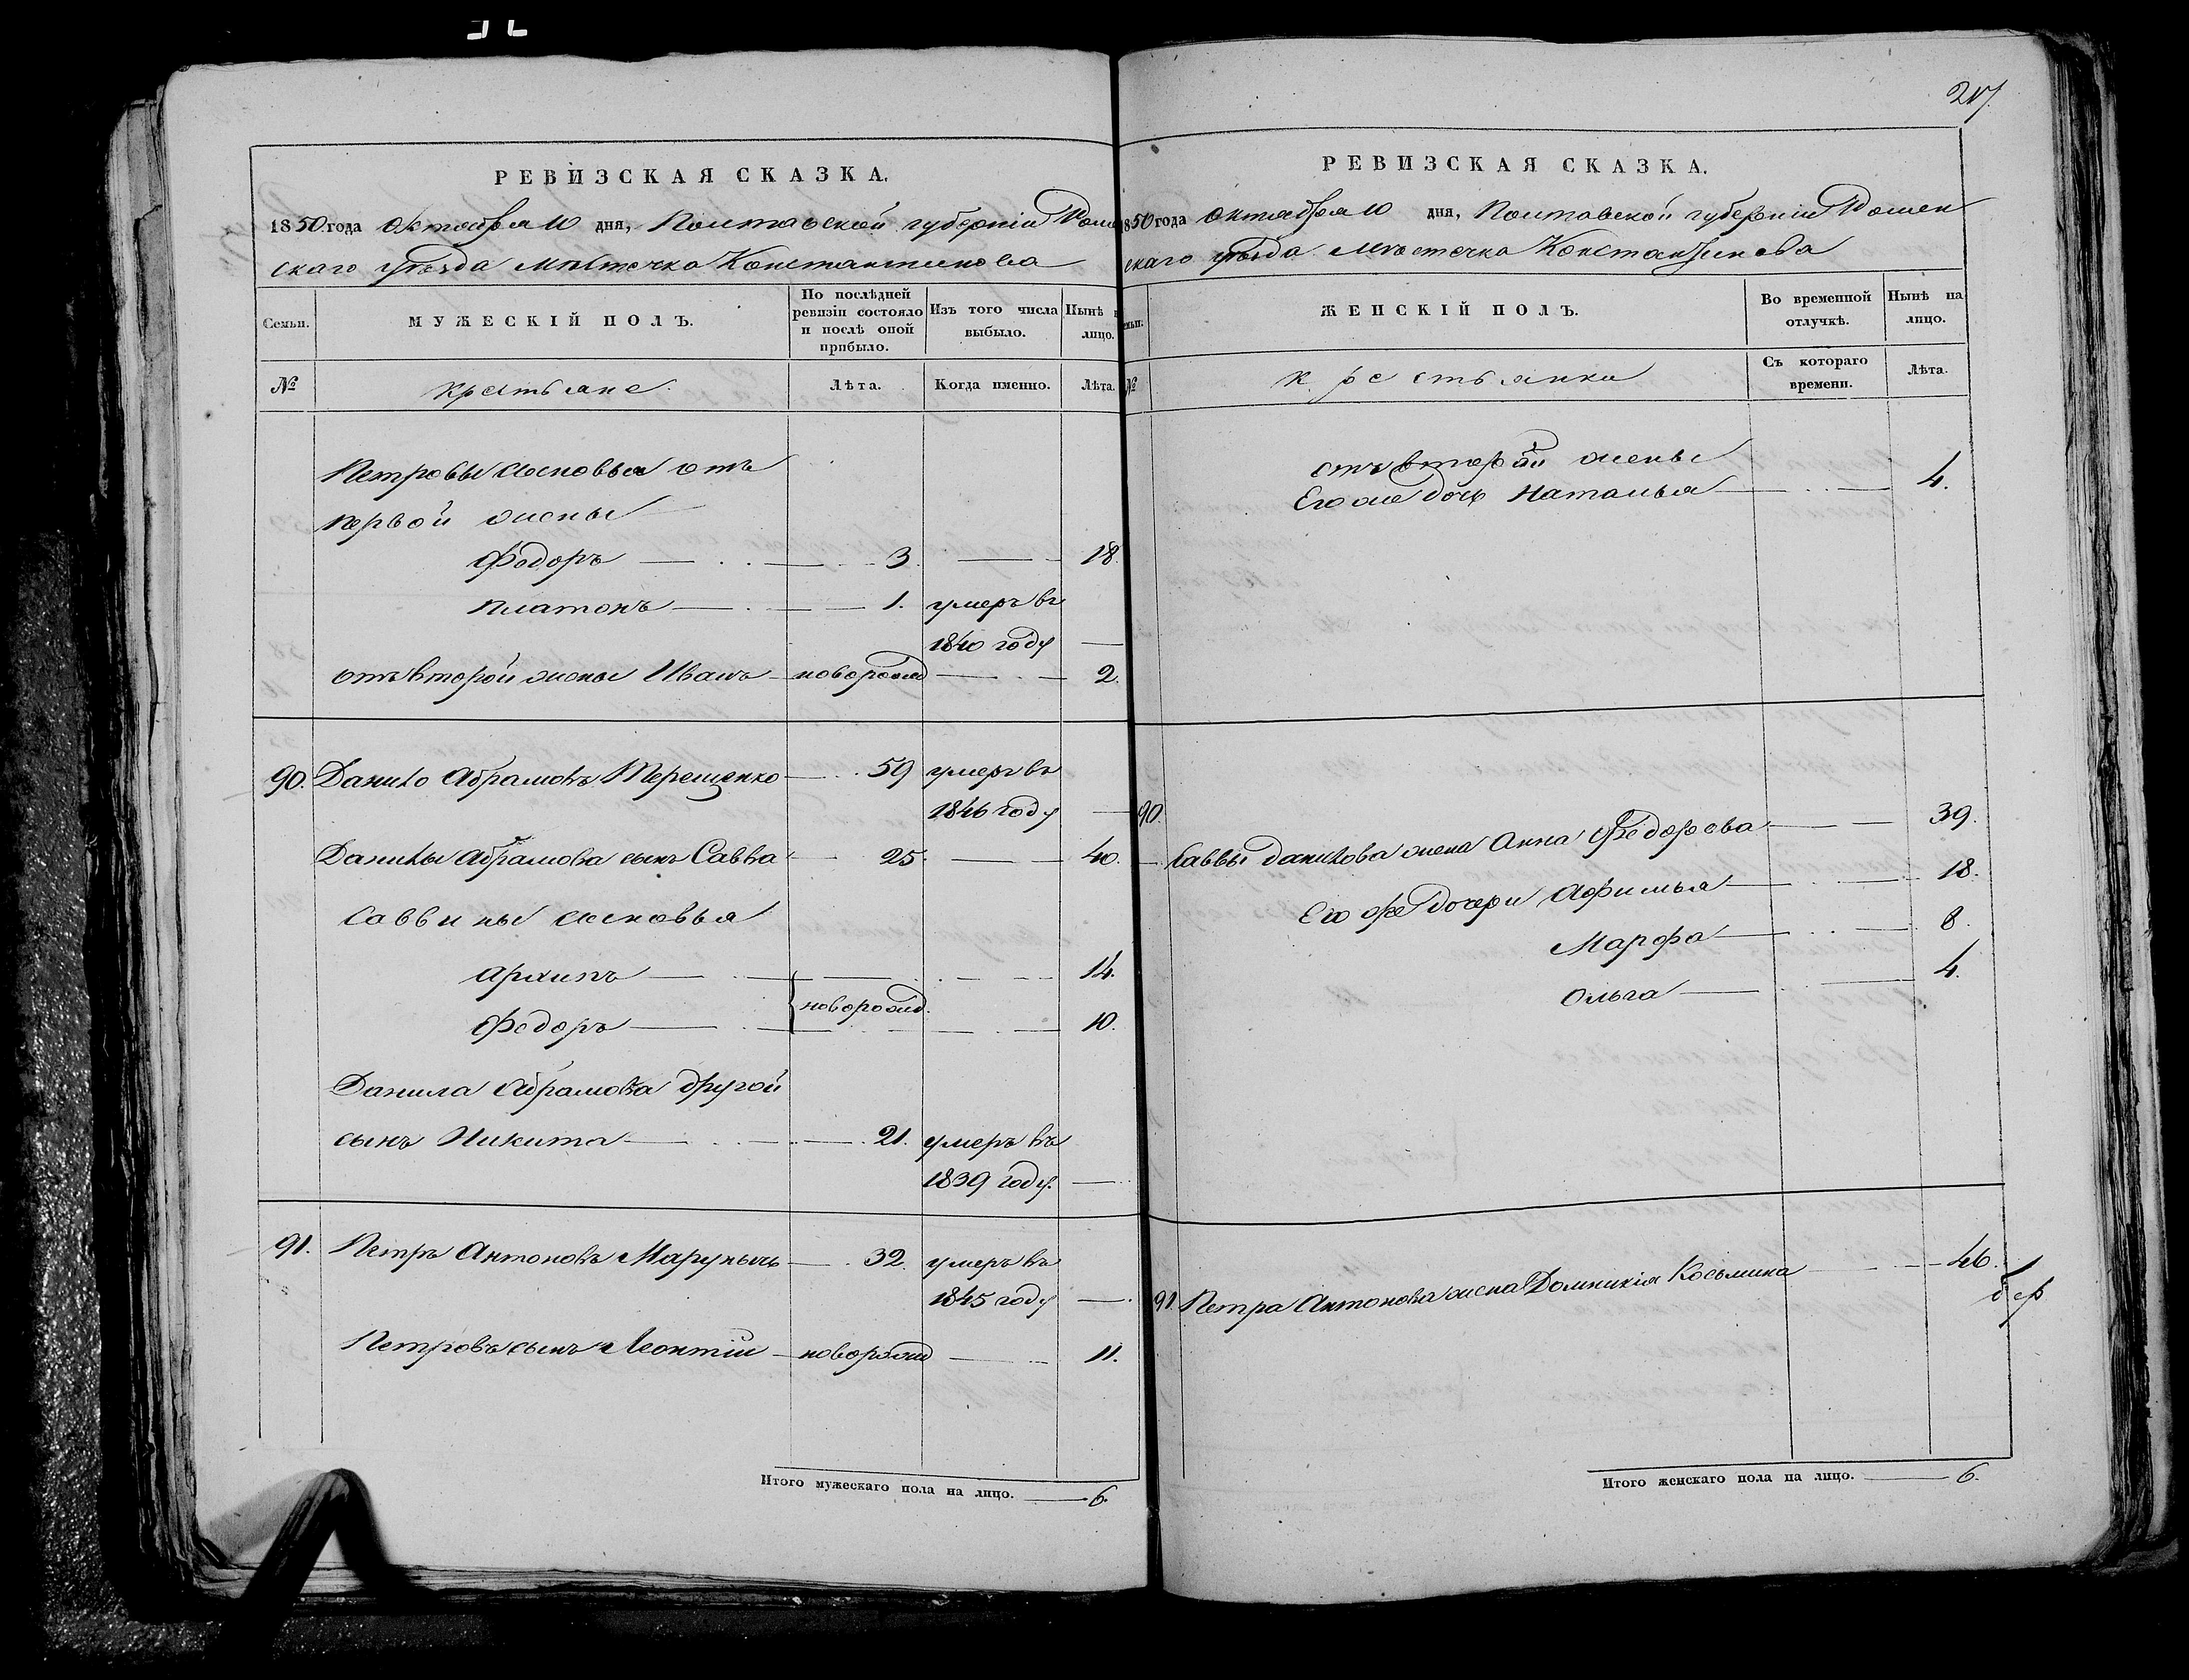 РЕВИЗСКАЯ СКАЗКА.
1850 года Октября 10 дня, Полтавской губерніи Ромен
скаго уѣзда мѣстечка Константинова
Семьи.
МУЖЕСКІЙ ПОЛЪ.
По послѣдней ревизіи состояло и послѣ оной прибыло.
Изъ того числа выбыло.
Нынѣ на лицо.
№
Крестьяне.
Лѣта.
Когда именно.
Лѣта.
Петровы сыновья отъ
первой жены
Федоръ 3. 18.
Платонъ 1. умеръ въ
1840 году
отъ второй жены Иванъ новорожд 2.
90. Данило Абрамовъ Терещенко 59 умеръ въ
1846 году
Данилы Абрамова сынъ Савва 25. 40.
Саввины сыновья
Архипъ 14.
новорожд.
Федоръ 10.
Данила Абрамова другой
сынъ Никита 21. умеръ въ
1839 году.
91. Петръ Антоновъ 32. умеръ въ
1845 году
Петровъ сынъ Леонтій новорожд 11.
Итого мужескаго пола на лицо. 6.
217
РЕВИЗСКАЯ СКАЗКА.
1850 года Октября 10 дня, Полтавской губерніи Ромен
скаго уѣзда мѣстечка Константинова
ЖЕНСКІЙ ПОЛЪ.
Во временной отлучкѣ.
Нынѣ на лицо.
№
Крестьянки
Съ котораго времени.
Лѣта.
отъ второй жены
Его же дочь Наталья 4.
90.
Саввы Данилова жена Анна Федорова 39.
Его же дочери Афимья 18.
Марфа 8.
Ольга 4.
91. Петра Антонова жена Домникія Косьмина 46.
Итого женскаго пола на лицо. 6.